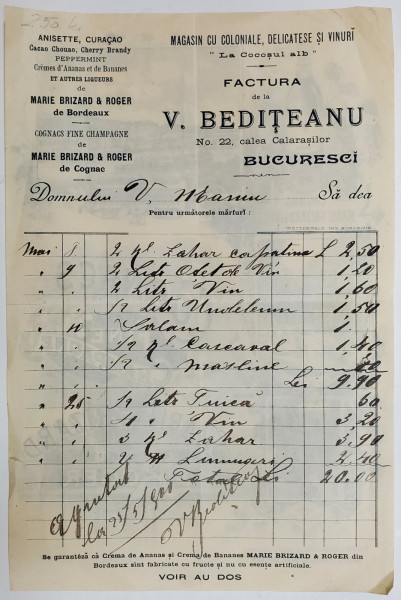 ANISETTE, CURAÇAO
Cacao Chouao, Cherry Brandy
PEPPERMINT
Crêmes d'Ananas et de Bananes
ET AUTRES LIQUEURS
de
MARIE BRIZARD & ROGER
de Bordeaux
COGNACS FINE CHAMPAGNE
de
MARIE BRIZARD & ROGER
de Cognac
MAGASIN CU COLONIALE, DELICATESE ȘI VINURĬ
"La Cocoșul alb"
FACTURA
de la
V. BEDIȚEANU
No. 22, calea Calarașilor
BUCURESCĬ
Domnului V. Maniu Să dea
Pentru următorele mărfurĭ:
Mai 8 2 Kl Zahar capatina L 2,50
" 9 2 Litr Oțet de Vin 1,20
" " 2 Litr Vin 1,60
" " 1/2 Litr Undelemn 1,50
" Salam 1.
" " 1/2 Kl Cascaval 1,40
" " 1/2 " Masline
Lei 9,90
" 25 1/2 Litr Țuică 60
" " " Vin 3,20
" " 3 Kl Zahar 3,90
" " 2 Lumunari 2,40
Total Lei 20.00
Achitat
la 25/5/900
V Bediteanu
Se garantéză că Crema de Ananas și Crema de Bananes MARIE BRIZARD & ROGER din
Bordeaux sînt fabricate cu fructe și nu cu esențe artificiale.
VOIR AU DOS